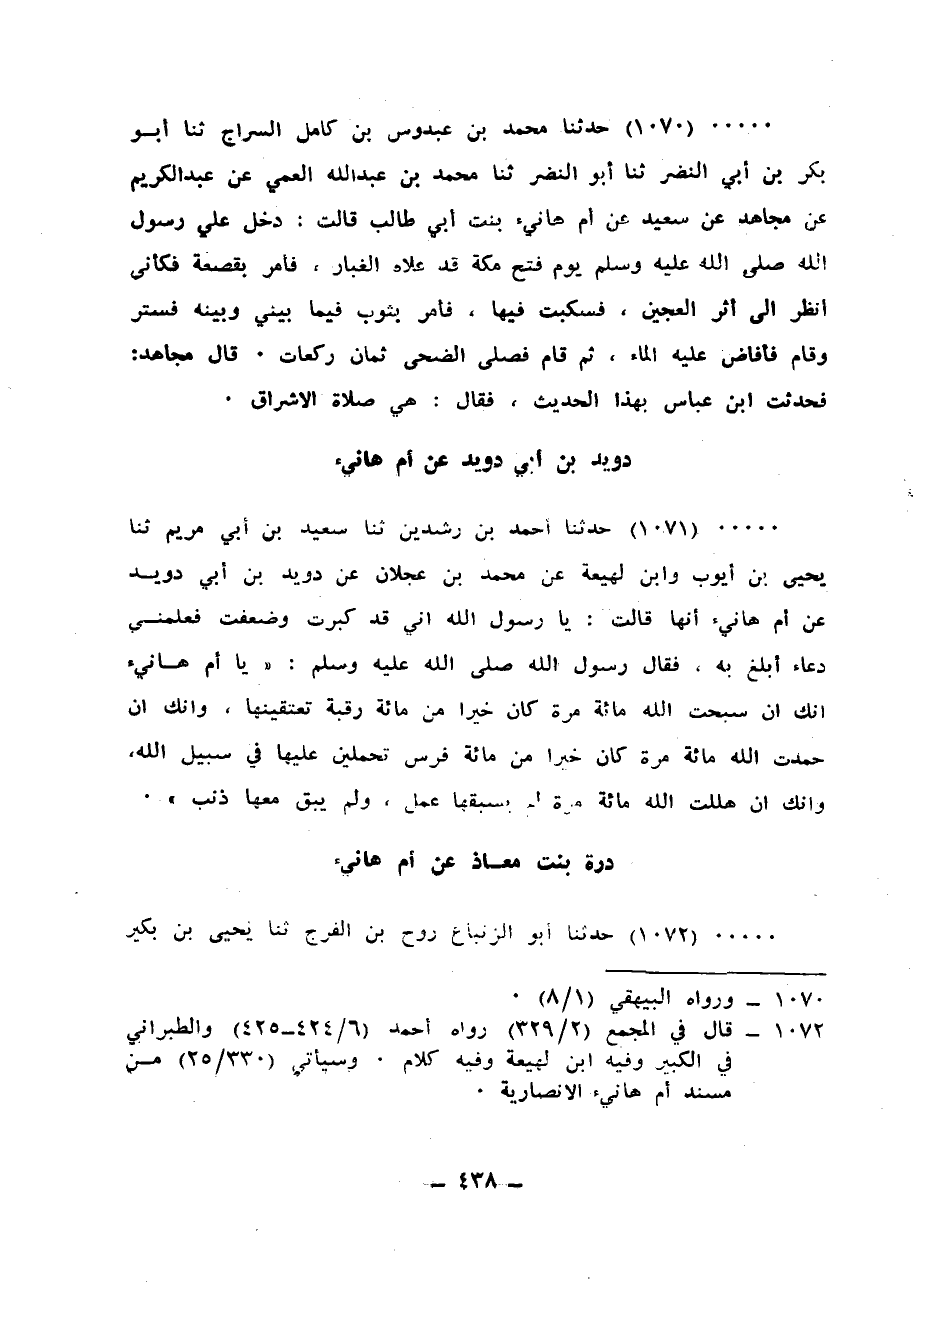 ..... (١٠٧٠) حدثنا محمد بن عبدوس بن كامل السراج ثنا أبــو
بكر بن أبي النضر ثنا أبو النضر ثنا محمد بن عبدالله العمي عن عبدالكريم
عن مجاهد عن سعيد عن أم هانيء بنت أبي طالب قالت : دخل علي رسول
الله صلى الله عليه وسلم يوم فتح مكة قد علاه الغبار ، فأمر بقصعة فكأني
أنظر الى أثر العجين ، فسكبت فيها ، فأمر بثوب فيما بيني وبينه فستر
وقام فأفاض عليه الماء ، ثم قام فصلى الضحى ثمان ركعات . قال مجاهد:
فحدثت ابن عباس بهذا الحديث ، فقال : هي صلاة الاشراق .
دويد بن أبي دويد عن أم هانيء
..... (١٠٧١) حدثنا أحمد بن رشدين ثنا سعيد بن أبي مريم ثنا
يحيى بن أيوب وابن لهيعة عن محمد بن عجلان عن دويد بن أبي دويــد
عن أم هانيء أنها قالت : يا رسول الله اني قد كبرت وضعفت فعلمنــي
دعاء أبلغ به ، فقال رسول الله صلى الله عليه وسلم : « يا أم هــانيء
انك ان سبحت الله مائة مرة كان خيرا من مائة رقبة تعتقينها ، وانك ان
حمدت الله مائة مرة كان خيرا من مائة فرس تحملين عليها في سبيل الله،
وانك ان هللت الله مائة مرة لم يسبقها عمل ، ولم يبق معها ذنب » .
درة بنت معــاذ عن أم هانيء
..... (١٠٧٢) حدثنا أبو الزنباع روح بن الفرج ثنا يحيى بن بكير
١٠٧٠ ـ ورواه البيهقي (٨/١) .
١٠٧٢ ـ قال في المجمع (٣٢٩/٢) رواه أحمد (٤٢٤/٦ـ٤٢٥) والطبراني
في الكبير وفيه ابن لهيعة وفيه كلام . وسيأتي (٢٥/٣٣٠) مــن
مسند أم هانيء الانصارية .
ـ ٤٣٨ ـ